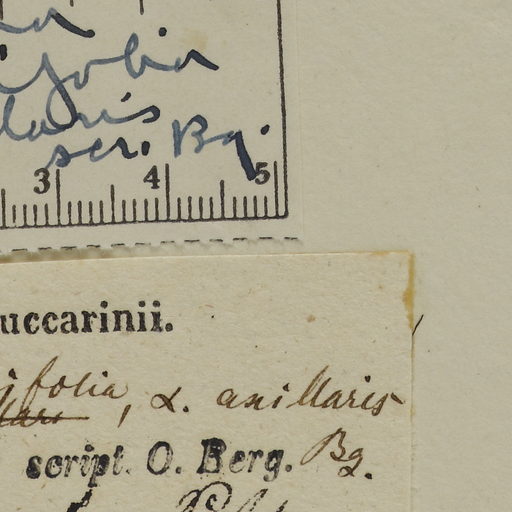 ifolia
laris
scr. Bg.
3 4 5
uccarinii.
ifolia, α. axillaris
script. O. Berg. Bg.